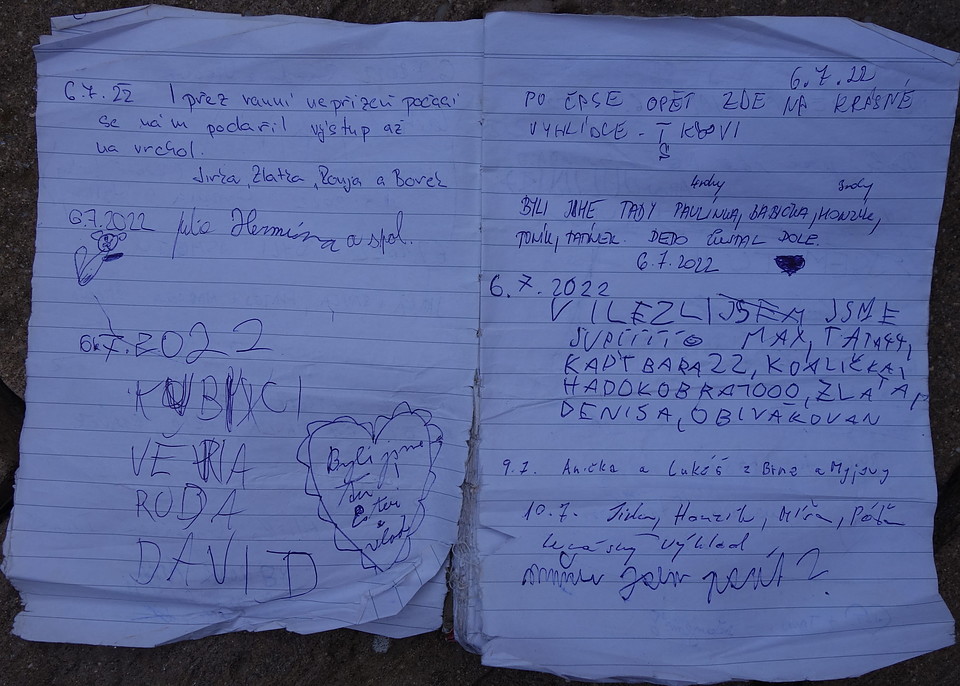 6.7.22 I přez ranní nepřízeň počasí
se nám podařil výstup až
na vrchol.
Jirka, Zlatka, a Borek
6.7.2022 Hermína a spol.
6.7.2022
KUBÍCI
VĚRA
ROBA
DAVID
Byli jsme
tu
Ester
6.7.22
PO ČASE OPĚT ZDE NA KRÁSNÉ
VYHLÍDCE -
4roky 3roky
BYLI JSME TADY PAULÍNKA, BABIČKA, HONZÍK,
TONÍK, TATÍNEK. DEDO ČEKAL DOLE.
6.7.2022
6.7.2022
VILEZLI JSEM JSME
MAX, TATA44,
KAPYBARA22, KOALIČKA1
HADOKOBRA1000, ZLATA,
DENISA, OBIVAKOVAN
9.7. Anička a Lukáš z Brna a Myjavy
10.7. Honzík, Míša,
výklad